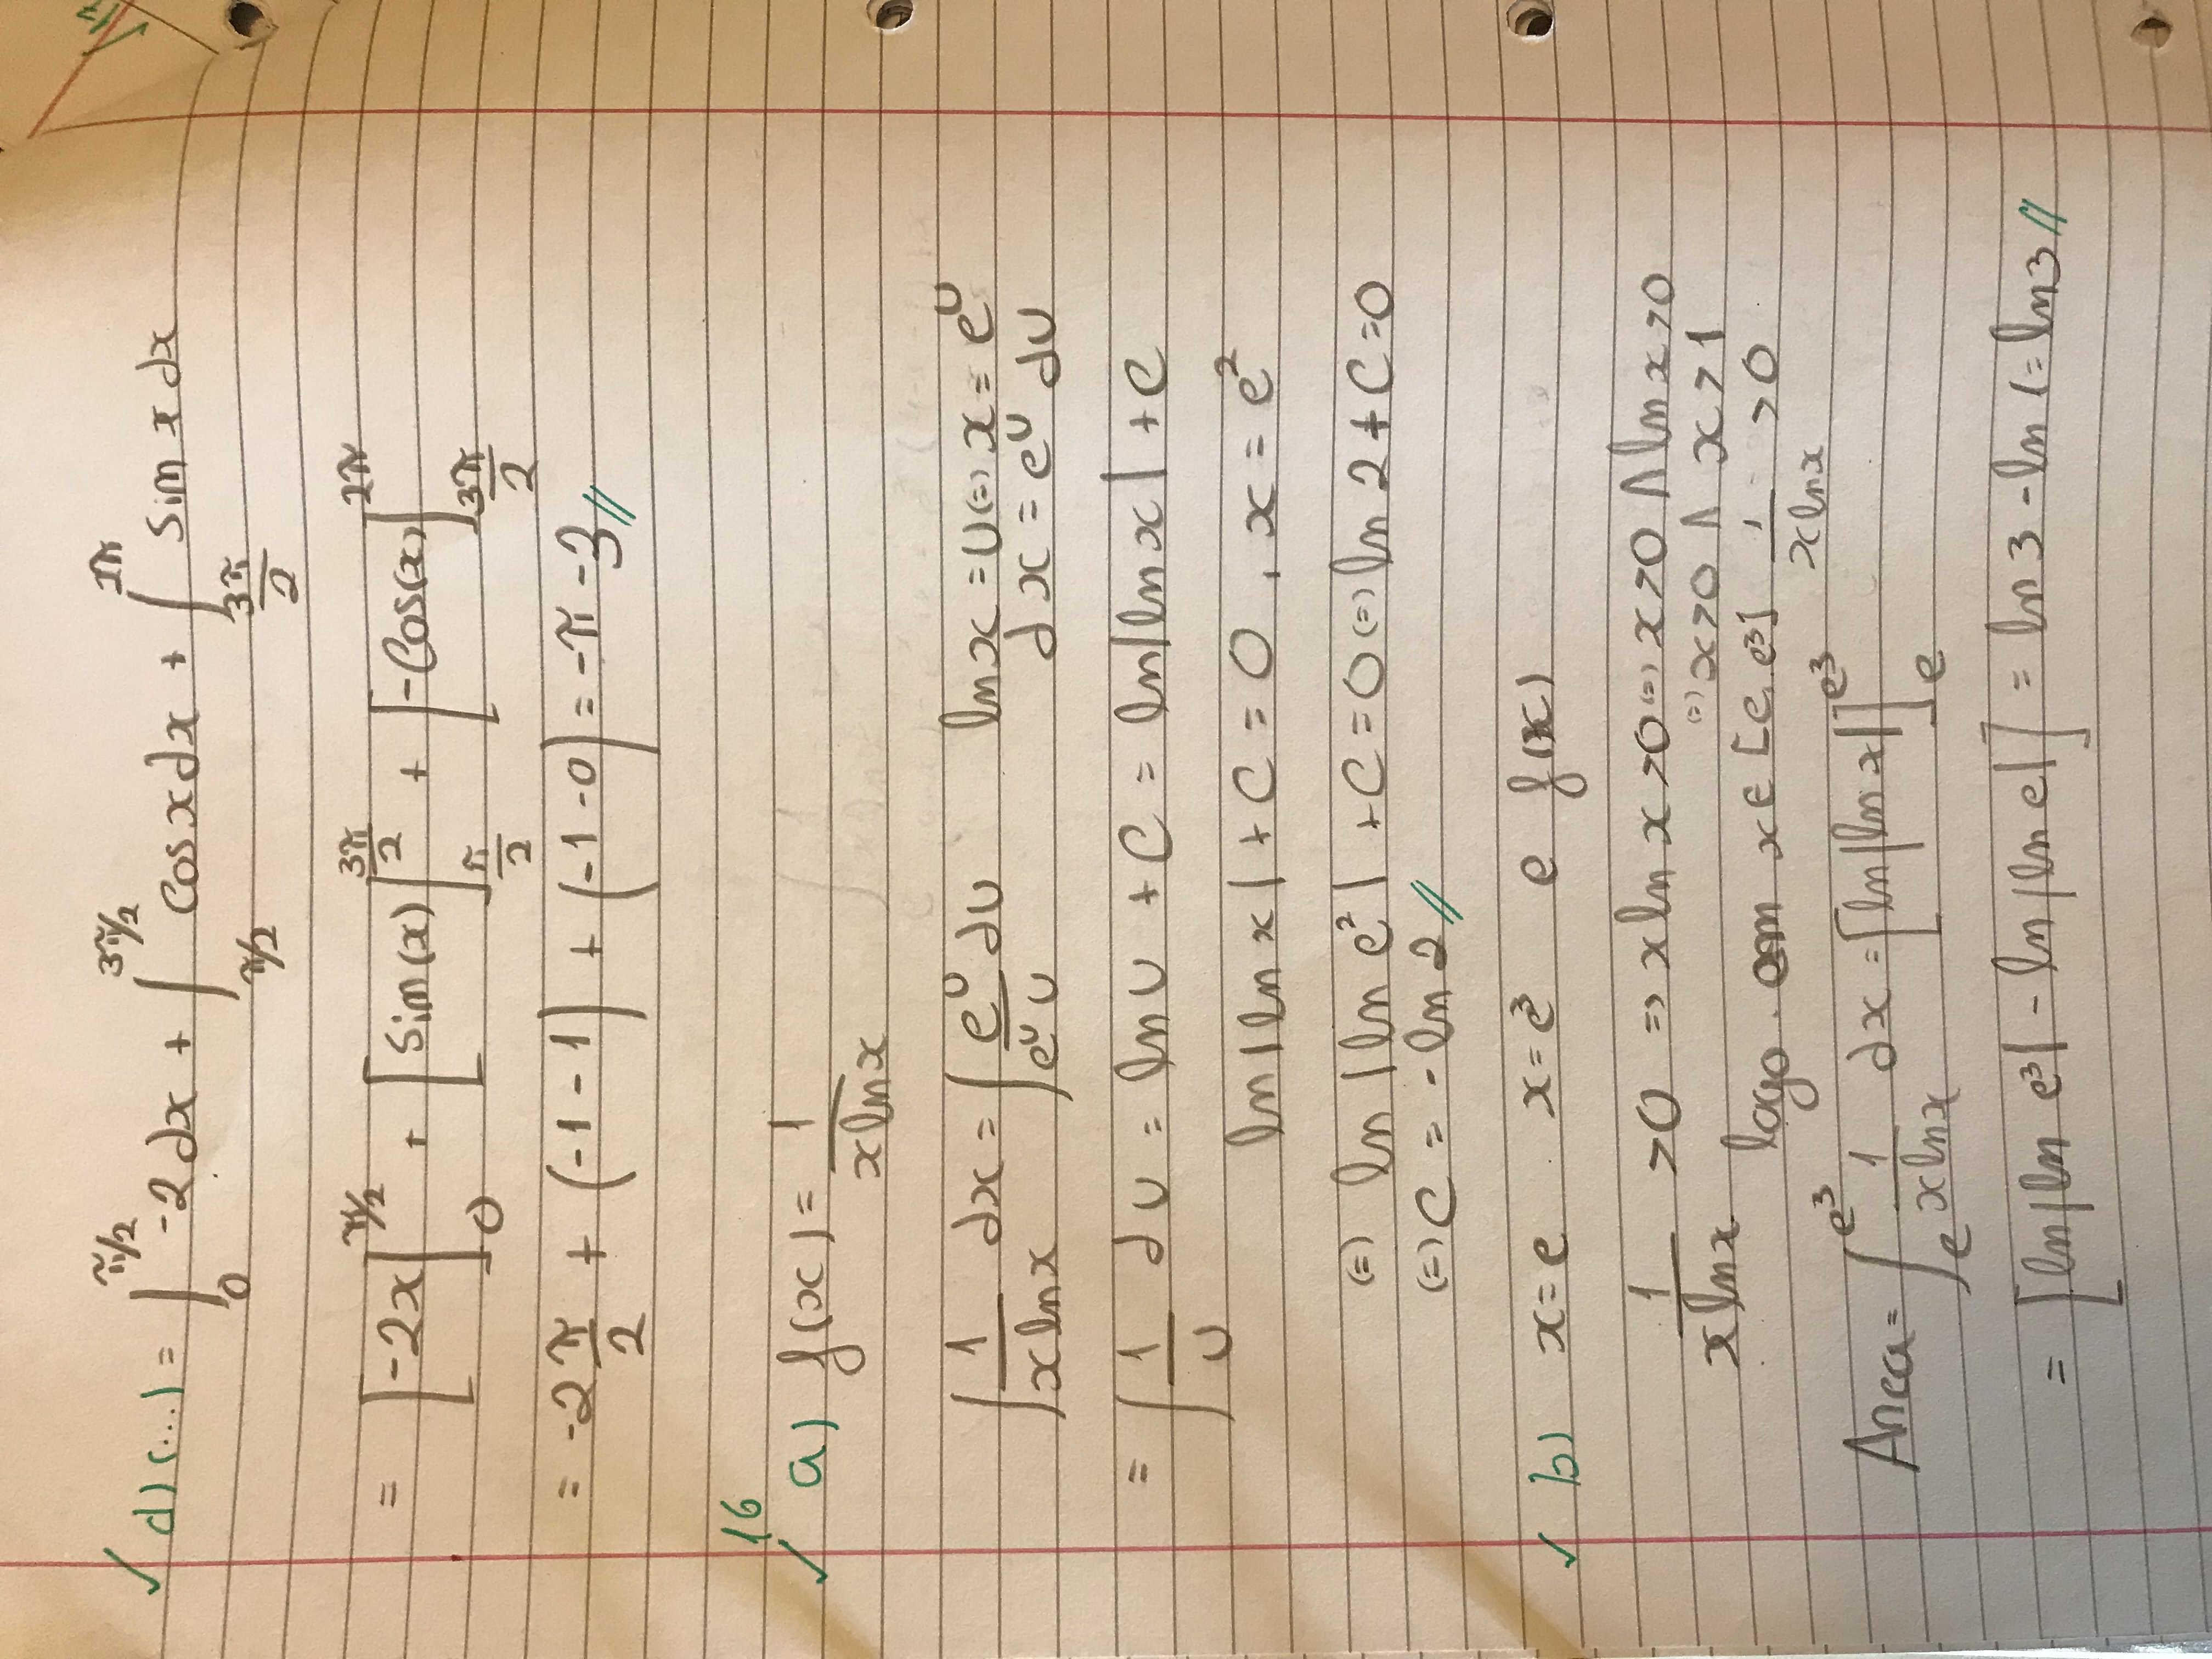 √17
✓ d) (...) = ∫₀^{π/2} -2 dx + ∫_{π/2}^{3π/2} cos x dx + ∫_{3π/2}^{2π} sin x dx
= [-2x]₀^{π/2} + [sin(x)]_{π/2}^{3π/2} + [-cos(x)]_{3π/2}^{2π}
= -2 π/2 + (-1 - 1) + (-1 - 0) = -π - 3 //
16
✓ a) f(x) = 1/(x ln x)
∫ 1/(x ln x) dx = ∫ e^u/(e^u u) du   ln x = u (=) x = e^u
dx = e^u du
= ∫ 1/u du = ln u + C = ln|ln x| + C
ln|ln x| + C = 0 , x = e²
(=) ln|ln e²| + C = 0 (=) ln 2 + C = 0
(=) C = -ln 2 //
✓ b) x = e . x = e³ e f(x)
1/(x ln x) > 0 => x ln x > 0 (=) x > 0 ∧ ln x > 0
(=) x > 0 ∧ x > 1
logo . em x ∈ [e, e³] 1/(x ln x) > 0
Area = ∫_e^{e³} 1/(x ln x) dx = [ln|ln x|]_e^{e³}
= [ln|ln e³| - ln|ln e|] = ln 3 - ln 1 = ln 3 //